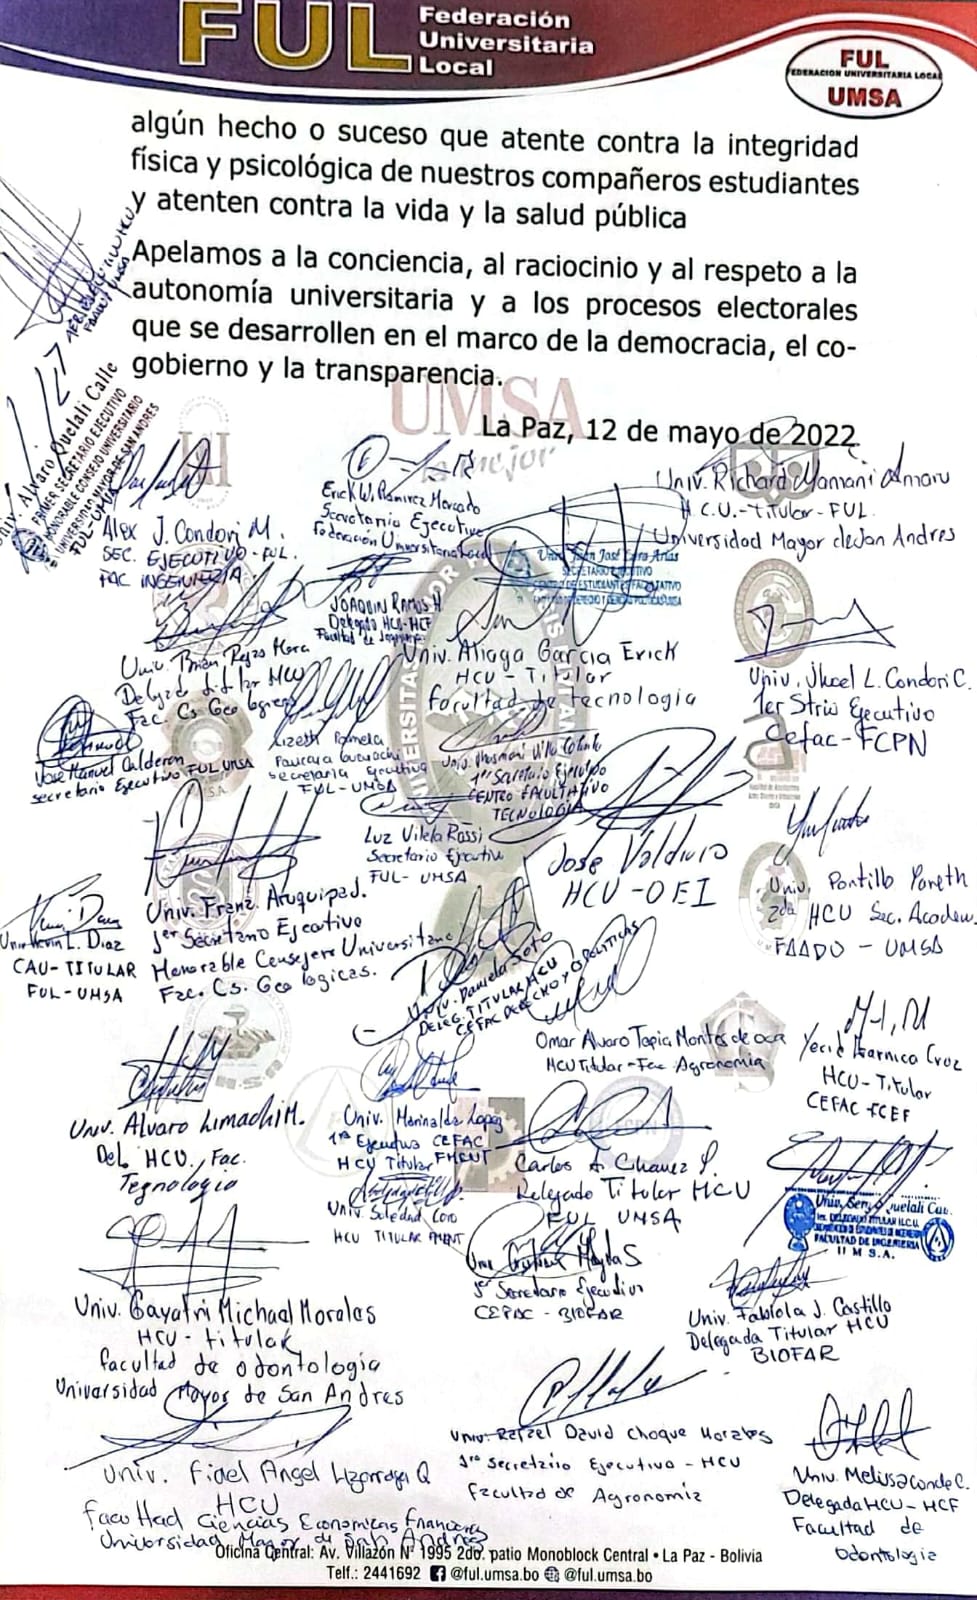 FUL Federación
Universitaria
Local
FUL
FEDERACION UNIVERSITARIA LOCAL
UMSA
algún hecho o suceso que atente contra la integridad
física y psicológica de nuestros compañeros estudiantes
y atenten contra la vida y la salud pública
Apelamos a la conciencia, al raciocinio y al respeto a la
autonomía universitaria y a los procesos electorales
que se desarrollen en el marco de la democracia, el co-
gobierno y la transparencia.
UMSA
La Paz, 12 de mayo de 2022
Univ. Alvaro Quelali Calle
PRIMER SECRETARIO EJECUTIVO
HONORABLE CONSEJO UNIVERSITARIO
UNIVERSIDAD MAYOR DE SAN ANDRES
FUL-UMSA
Alex J. Condori M.
SEC. EJECUTIVO-FUL.
FAC INGENIERIA
Erick W. Ramirez Mercado
Secretario Ejecutivo
Federacion Universitaria Local
Univ. Richard Mamani Amaru
H.C.U.-Titular-FUL.
Universidad Mayor de San Andres
SECRETARIO EJECUTIVO
CENTRO DE ESTUDIANTES FACULTATIVO
JOAQUIN RAMOS H
Delegado HCU-HCF
Facultad de Ingenieria
Univ. Brian Rojas Mora
Delegado titular HCU
Fac. Cs. Geologicas
Univ. Aliaga Garcia Erick
HCU-Titular
Facultad de tecnologia
Univ. Jhoel L. Condori C.
1er Strio Ejecutivo
Cefac-FCPN
Jose Manuel Calderon
secretario Ejecutivo FUL UMSA
Lizeth Pamela
secretaria Ejecutiva
FUL-UMSA
1er Secretario Ejecutivo
CENTRO FACULTATIVO
TECNOLOGIA
Luz Vilela Rossi
Secretario Ejecutiva
FUL- UMSA
Jose Valdivia
HCU-OEI
Univ. Portillo Yoneth
2da HCU Sec. Academ.
FAADU - UMSA
Univ. Kevin L. Diaz
CAU-TITULAR
FUL-UMSA
Univ. Franz Aruquipa d.
1er Secretario Ejecutivo
Honorable Consejero Universitario
Fac. Cs. Geologicas.
Univ. Daniela Soto
DELEG. TITULAR HCU
CEFAC DERECHO Y C. POLITICAS
Omar Alvaro Tapia Montes de oca
HCU Titular-Fac Agronomia
Yecid Garnica Cruz
HCU-Titular
CEFAC-FCEF
Univ. Alvaro Limachi M.
Del. HCU. Fac.
Tegnologia
Univ. Marinalda Lopez
1ra Ejecutiva CEFAC
HCU Titular
Carlos A. Chavez P.
Delegado Titular HCU
FUL UMSA
Univ. Soledad Coro
HCU TITULAR
1er DELEGADO TITULAR H.C.U.
FACULTAD DE INGENIERIA
U M S A.
1er Secretario Ejecutivo
CEFAC - BIOFAR
Univ. Fabiola J. Castillo
Delegada Titular HCU
BIOFAR
Univ. Gayatri Michael Morales
HCU-titular
facultad de odontologia
Universidad Mayor de San Andres
Univ. Rafael David Choque Morales
1ro Secretario Ejecutivo-HCU
Facultad de Agronomia
Univ. Melissa Conde C.
Delegada HCU-HCF
Facultad de
Odontologia
Univ. Fidel Angel Lizarraga Q
HCU
Facultad Ciencias Economicas Financieras
Universidad Mayor de San Andres
Oficina Central: Av. Villazón Nº 1995 2do. patio Monoblock Central • La Paz - Bolivia
Telf.: 2441692 @ful.umsa.bo @ful.umsa.bo